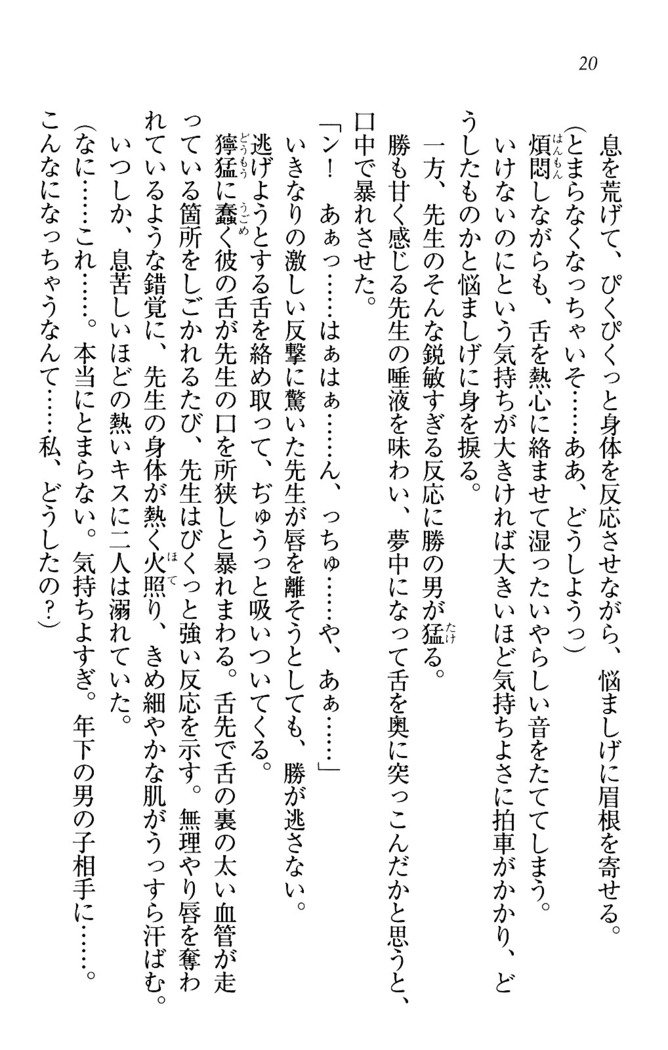 20
息を荒げて、ぴくぴくっと身体を反応させながら、悩ましげに眉根を寄せる。
(とまらなくなっちゃいそ……ああ、どうしようっ)
煩悶しながらも、舌を熱心に絡ませて湿ったいやらしい音をたててしまう。
いけないのにという気持ちが大きければ大きいほど気持ちよさに拍車がかかり、ど
うしたものかと悩ましげに身を捩る。
一方、先生のそんな鋭敏すぎる反応に勝の男が猛る。
勝も甘く感じる先生の唾液を味わい、夢中になって舌を奥に突っこんだかと思うと、
口中で暴れさせた。
「ン！　あぁっ……はぁはぁ……ん、っちゅ……や、あぁ……」
いきなりの激しい反撃に驚いた先生が唇を離そうとしても、勝が逃さない。
逃げようとする舌を絡め取って、ぢゅうっと吸いついてくる。
獰猛に蠢く彼の舌が先生の口を所狭しと暴れまわる。舌先で舌の裏の太い血管が走
っている箇所をしごかれるたび、先生はびくっと強い反応を示す。無理やり唇を奪わ
れているような錯覚に、先生の身体が熱く火照り、きめ細やかな肌がうっすら汗ばむ。
いつしか、息苦しいほどの熱いキスに二人は溺れていた。
(なに……これ……。本当にとまらない。気持ちよすぎ。年下の男の子相手に……。
こんなになっちゃうなんて……私、どうしたの？)